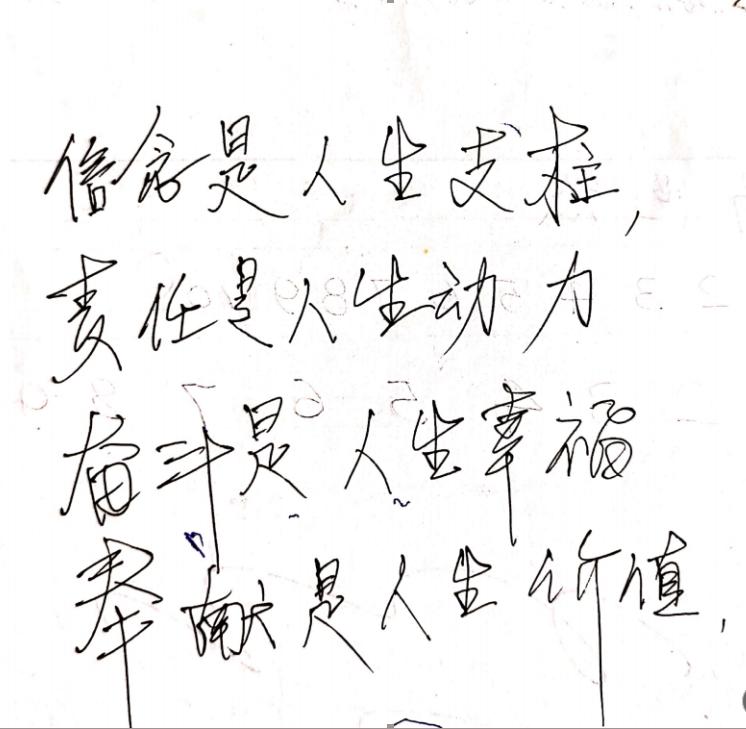 信念是人生支柱,
责任是人生动力
奋斗是人生幸福
奉献是人生价值,